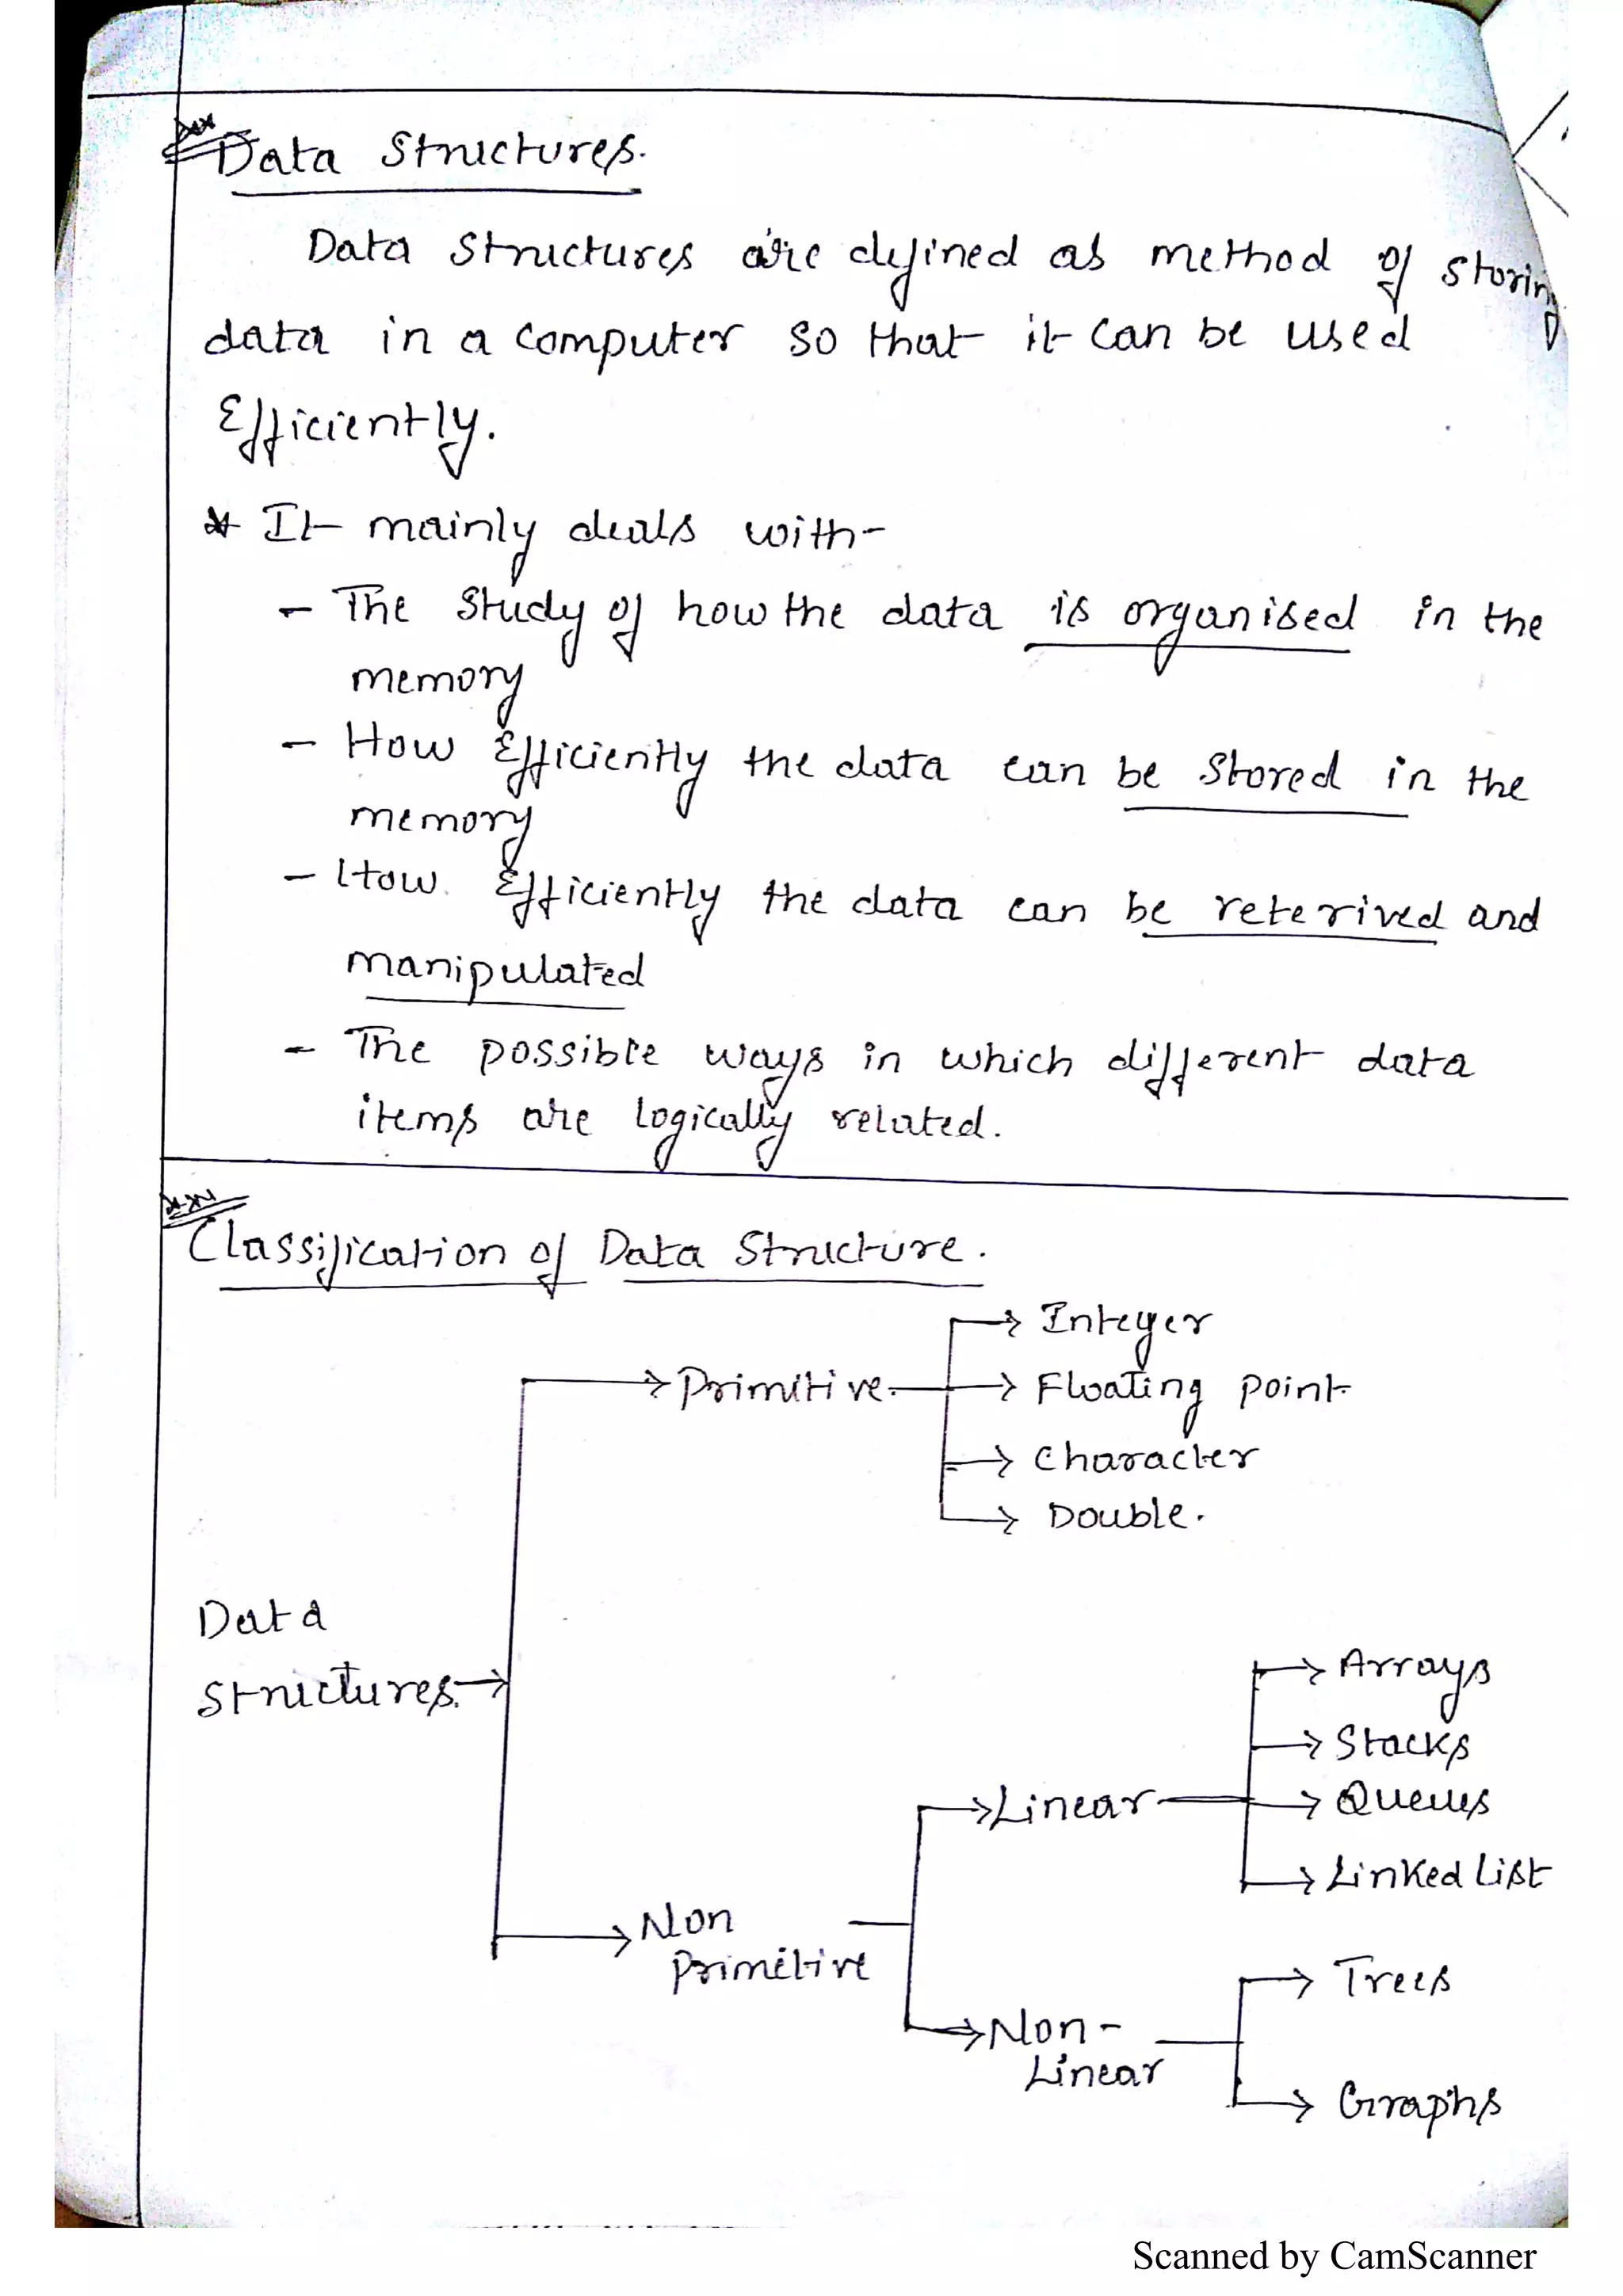 Data Structures.
Data Structures are defined as method of storing
data in a computer so that it can be used
Efficiently.
* It mainly deals with-
- The Study of how the data is organised in the
memory
- How Efficiently the data can be stored in the
memory
- How Efficiently the data can be reterived and
manipulated
- The possible ways in which different data
items are logically related.
Classification of Data Structure.
Integer
Primitive
Floating point
Character
Double.
Data
Structures.
Arrays
Stacks
Linear
Queues
Linked List
Non
Primitive
Trees
Non-
Linear
Graphs
Scanned by CamScanner